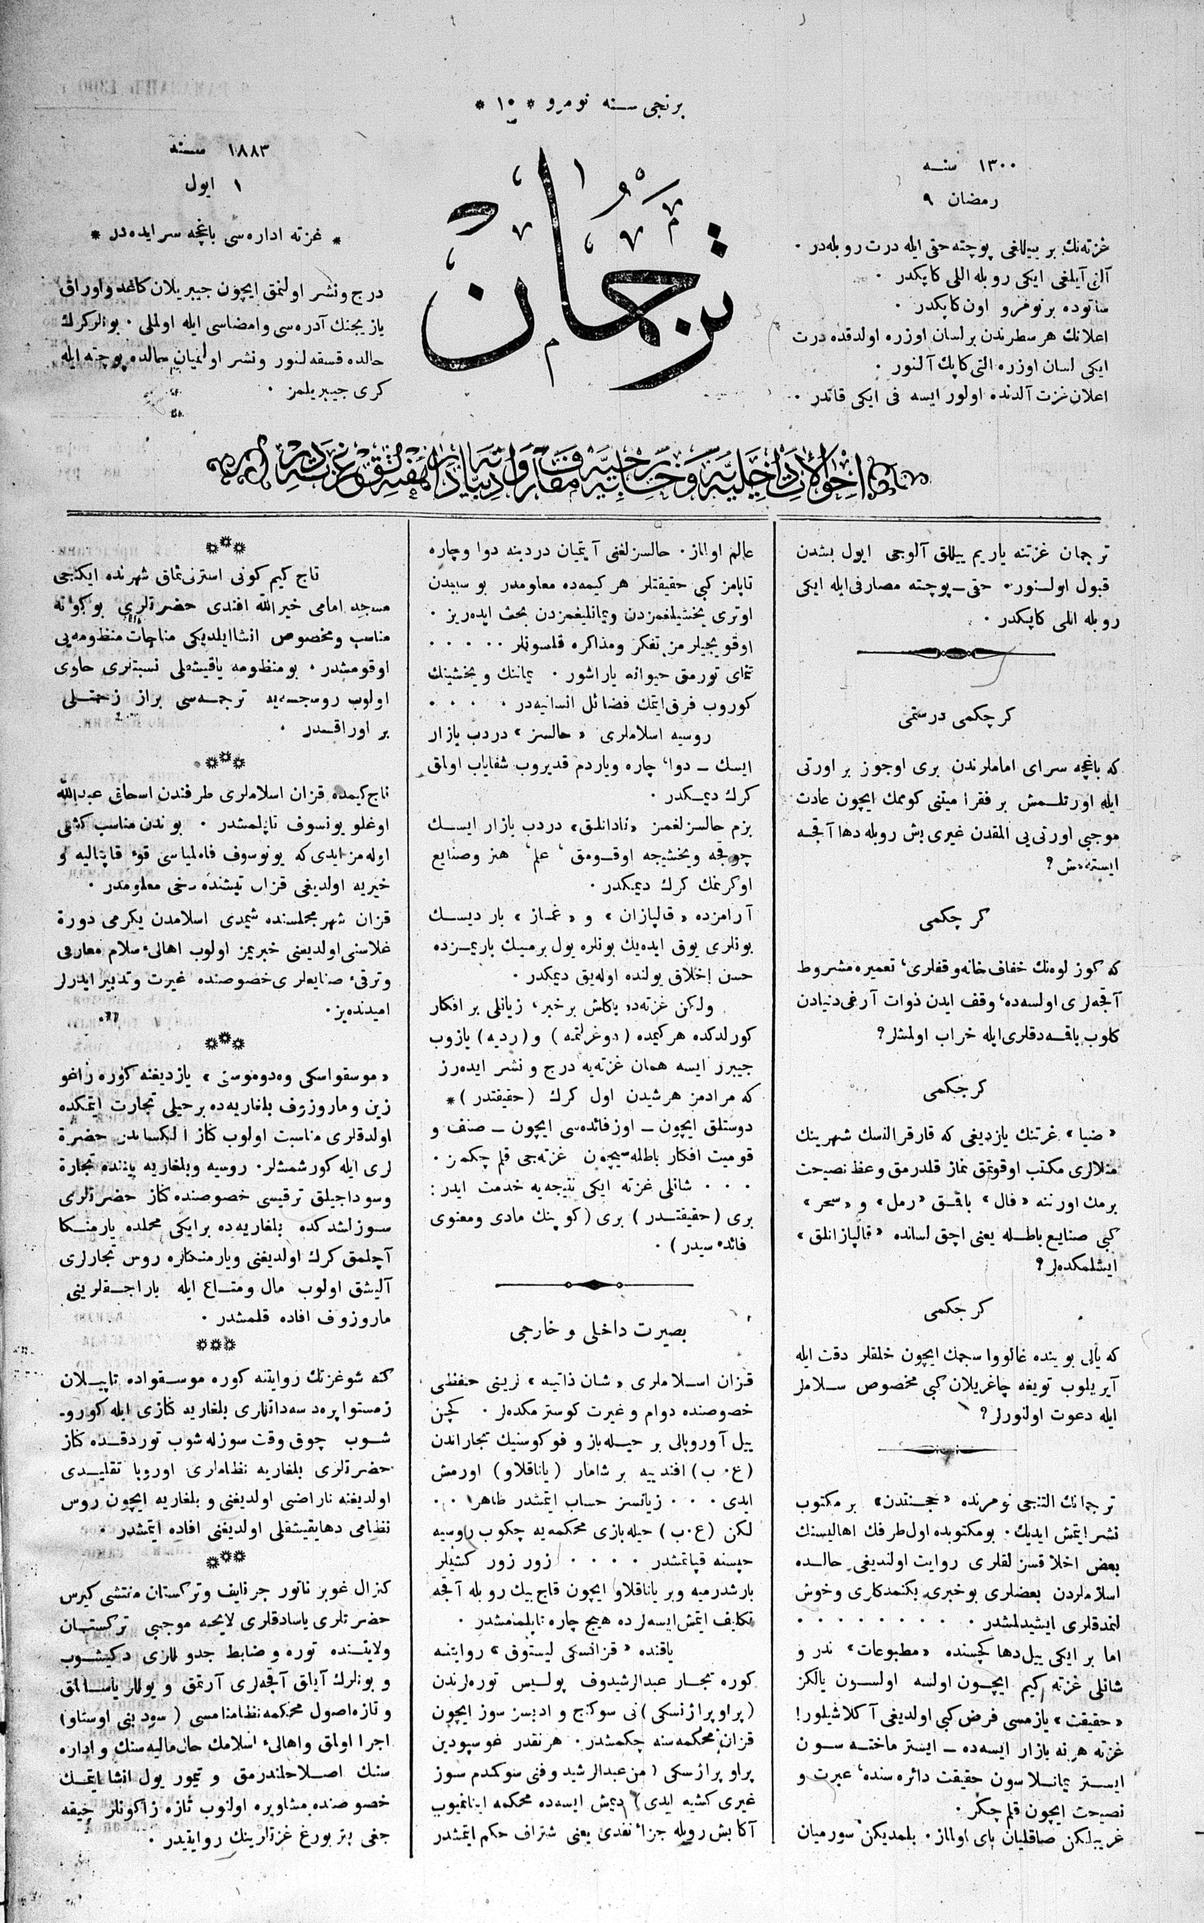 برنجی سنه نومرو * ١٠ *
١٣٠٠ سنه
رمضان ٩
غزته‌نك بر ییللغی پوچته حقی ایله درت روبله‌در .
آلتی آیلغی ایکی روبله اللی کاپکدر .
صاتوده بر نومرو اون کاپکدر .
اعلانك هر سطرندن بر لسان اوزره اولدقده درت
ایکی لسان اوزره التی کاپك آلنور .
اعلان غزت آلدنده اولور ایسه فی ایکی قاتدر .
ترجمان
١٨٨٣ سنه
١ ایول
* غزته اداره‌سی باغچه سرایده‌در *
درج ونشر اولنمق ایچون جیبریلان کاغد و اوراق
یازیجنك آدره‌سی وامضاسی ایله اولملی . بونلر کرك
حالده قسقه‌لنور ونشر اولنمیان حالده پوچته ایله
کری جیبریلمز .
احوالات داخلیه وخارجیه معارف وادبیاته دائر هفته‌لق غزته‌در
ترجمان غزتنه یاریم ییللق آلوجی ایول بشدن
قبول اولنور. حق_پوچته مصارفی ایله ایکی
روبله اللی کاپکدر .
کرچکمی درستمی
که باغچه سرای اماملرندن بری اوجوز بر اورتی
ایله اورتلمش بر فقرا میتنی کوممك ایچون عادت
موجبی اورتی‌یی المقدن غیری بش روبله دها آقچه
ایسته‌مش؟
کرچکمی
که کوزلوه‌نك خفاف خانه وقفلری، تعمیره مشروط
آقچه‌لری اولسه‌ده، وقف ایدن ذوات آرغی دنیادن
کلوب باقه‌دقلری ایله خراب اولمشلر؟
کرجکمی
«ضیا» غزتنك یازدیغی که قارقرالسك شهرینك
منلالری مکتب اوقوتمق نماز قلدرمق وعظ نصیحت
برمك اورننه «فال» باقمق «رمل» و «سحر»
کبی صنایع باطله یعنی اچق لسانده «قالپازانلق»
ایشلمکده‌لر؟
کرجکمی
که یالی بوینده غالووا سچمك ایچون خلقلر دقت ایله
آیریلوب تویغه چاغریلان کبی مخصوص سلاملر
ایله دعوت اولنورلر؟
ترجمانك التنجی نومرنده «خجندن» بر مکتوب
نشر ایتمش ایدیك . بو مکتوبده اول طرفك اهالیسنك
بعض اخلاقسزلقلری روایت اولندیغی حالده
اسلاملردن بعضلری بوخبری بکنمدکاری وخوش
لنمدقلری ایشیدلمشدر . . . . . . . .
اما بر ایکی ییل دها کچسنده «مطبوعات» ندر و
شانلی غزته کیم ایچون اولسه اولسون یالکز
«حقیقت» یازمسی فرض کبی اولدیغی آکلاشیلور!
غزته هرنه یازار ایسه‌ده _ ایستر ماختـه سون
ایستر یمانلاسون حقیقت دائره سنده، عبرت و
نصیحت ایچون قلم چکر .
غریبلکن صاقلیان بای اولماز . بلمدیکن سورمیان
عالم اولماز . حالسزلغنی آیتمیان دردینه دوا وچاره
تاپامز کبی حقیقتلر هر کیمه‌ده معلومدر بو سببدن
اوتری یخشیلغمزدن ویمانلیغمزدن بحث ایده‌ریز .
اوقویجیلرمز تفکر ومذاکره قلسونلر . . . . .
تنمای تورمق حیوانه یاراشور . یماننك ویخشینك
کوروب فرق ایتمك فضائل انسانیه‌در . . . .
روسیه اسلاملری «حالسز» دردب یازار
ایسك _ دوا، چاره ویاردم قدیروب شفایاب اولمق
کرك دیمکدر .
بزم حالسزلغمز «نادانلق» دردب یازار ایسك
چوقجه ویخشیجه اوقومق، علم، هنر وصنایع
اوکرنمك کرك دیمکدر .
آرامزده «قالپازان» و «غماز» بار دیسك
بونلری یوق ایده‌یك بونلره یول برمیك باریمزده
حسن اخلاق یولنده اوله‌یق دیمکدر .
ولکن غزته‌ده یاکلش بر خبر، زیانلی بر افکار
کورلدکده هر کیمده (دوغرلتمه) و (ردیه) یازوب
جیبرر ایسه همان غزته‌یه درج و نشر ایده‌رز
که مرادمز هر شیدن اول کرك (حقیقتدر) *
دوستلق ایچون _ اوز فائده‌سی ایچون _ صنف و
قومیت افکار باطله‌سیچون غزته‌جی قلم چکمز .
. . . شانلی غزته ایکی نتیجه‌یه خدمت ایدر :
بری (حقیقتدر) بری (کوپنك مادی ومعنوی
فائده سیدر) .
بصیرت داخلی و خارجی
قزان اسلاملری «شان ذاتیه» لرینی حفظی
خصوصنده دوام و غیرت کوسترمکده‌لر . کچن
ییل آوروپالی بر حیله‌باز و فوکوسنیك تجاراندن
(ع . ب) افندییه بر شامار (یاناقلاو) اورمش
ایدی . . . زیانسز حساب ایتمشدر ظاهر . .
لکن (ع.ب) حیله‌بازی محکمه‌یه چکوب روسیه
حبسنه قپاتمشدر . . . . زور زور کشیلر
بارشدرمیه ویر یاناقلاو ایچون قاچ بیك روبله آقچه
تکلیف ایتمش ایسه‌لرده هیچ چاره تاپلمنمشدر .
یاقنده «قزانسکی لیستوق» روایتنه
کوره تجار عبدالرشیدوف پولیس توره‌لرندن
(پراوپراژنسکی) نی سوکنج و ادبسز سوز ایچون
قزان محکمه‌سنه چکمشدر . هرنقدر غوسپودین
پراوپراژسکی (من عبدالرشیدوفنی سوکمدم سوز
غیری کشیه ایدی) دیمش ایسه‌ده محکمه اینانمیوب
آکا بش روبله جزا نقدی یعنی شتراف حکم ایتمشدر
***
تاج کیم کونی استرلی‌تماق شهرنده ایکنجی
مسجد امامی خیرالله افندی حضرتلری بو کونه
مناسب ومخصوص انشا ایلدیکی مناجات منظومه‌یی
اوقومشدر . بو منظومه یاقیشقلی نسبتلری حاوی
اولوب روسچه‌یه ترجمه‌سی براز زحمتلی
بر اوراقدر .
***
تاج کیمده قزان اسلاملری طرفندن اسحاق عبدالله
اوغلو یونسوف تاپلمشدر . بوندن مناسب کشی
اوله‌مز ایدی که یونوسوف فامیلیاسی قوۀ قاپتالیه و
خیریه اولدیغی قزان تیشنده دخی معلومدر .
قزان شهر مجلسنده شیمدی اسلامدن یکرمی دورة
غلاسنی اولدیغنی خبریمز اولوب اهالیء اسلام معارفی
وترقیء صنایعلری خصوصنده غیرت وتدبیر ایدرلر
امیدنده‌یز .
***
«موسقواسکی وه‌دوموستی» یازدیغنه کوره زاغو
زین وماروزوف بلغاریه‌ده بر حیلی تجارت ایتمکده
اولدقلری مناسبت اولوب کناز الکساندر حضرة
لری ایله کورشمشلر . روسیه وبلغاریه بیننده تجارة
وسوداجیلق ترقیسی خصوصنده کناز حضرتلری
سوزلشدکده بلغاریه‌ده بر ایکی محلده یارمنکا
آچلمق کرك اولدیغنی ویارمنکاره روس تجارلری
آلیشق اولوب مال ومتاع ایله باراجقلرینی
ماروزوف افاده قلمشدر .
***
کنه شو غزتك روایتنه کوره موسقواده تاپیلان
زمستوا پره‌دسه‌داتلری بلغاریه کنازی ایله کورو-
شوب چوق وقت سوزله‌شوب توردقده کناز
حضرتلری بلغاریه نظاملری اوروپا تقلیدی
اولدیغنه ناراضی اولدیغنی و بلغاریه ایچون روس
نظامی دها یقیشقلی اولدیغنی افاده ایتمشدر .
***
کنرال غوبرناتور چرنایف وترکستان مفتشی کیرس
حضرتلری یاسادقلری لایحه موجبی ترکستان
ولایتنده توره وضابط جدوللاری دکیشوب
و بونلرك آیلق آقچه‌لری آرتمق و یوللر یاسالمق
و تازه اصول محکمه نظامنامسی (سودبنی اوستاو)
اجرا اولمق واهالیء اسلامك حال مالیه‌سنك واداره
سنك اصلاحلندرمق و تیمور یول انشا ایتمك
خصوصنده مشاوره اولنوب تازه زاکونلر چیقه
جغی پتربورغ غزتلرینك روایتیدر .